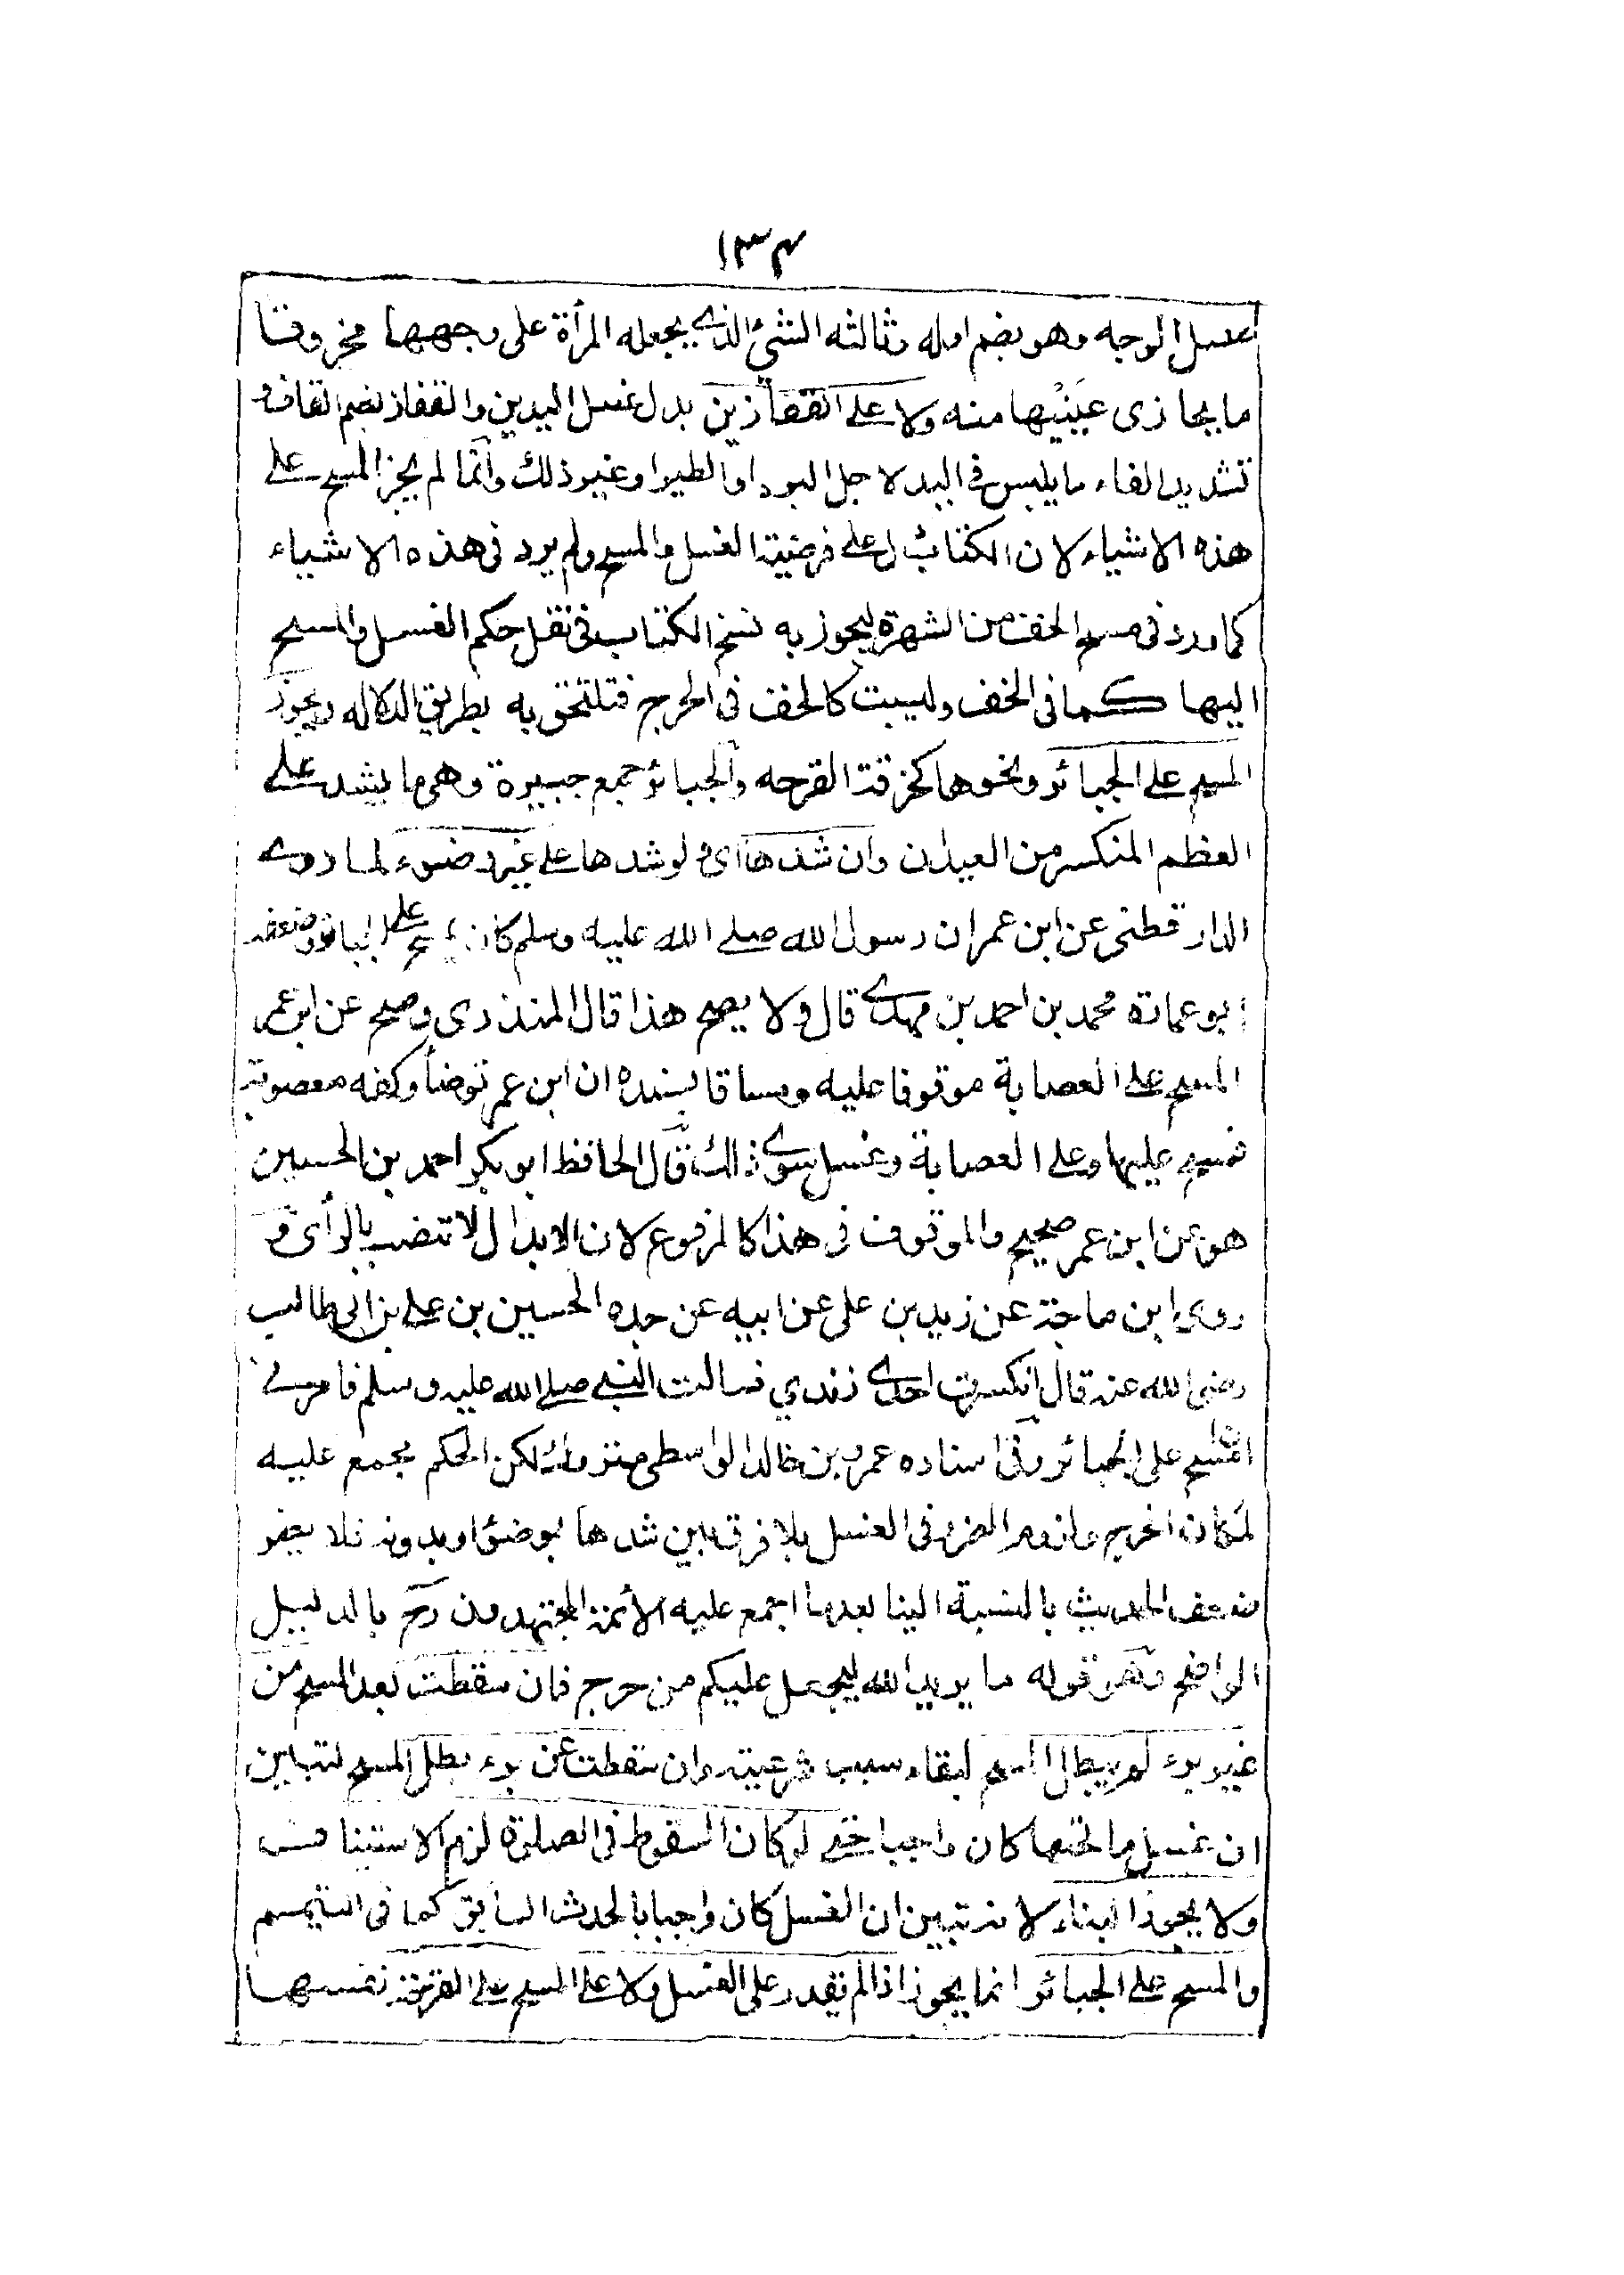 ١٣٤
غسل الوجه وهو بضم اوله وثالثه الشئ الذى يجعله المرأة على وجهها مخروقا
ما يحاذى عينيها منه ولا على القفازين بدل غسل اليدين والقفاز بضم القاف و
تشديد الفاء ما يلبس فى اليد لاجل البرد او الطير او غير ذلك وانما لم يجز المسح على
هذه الاشياء لان الكتاب دل على فرضية الغسل والمسح ولم يرد فى هذه الاشياء
كما ورد فى مسح الخف من الشهرة ليجوز به نسخ الكتاب فى نقل حكم الغسل والمسح
اليها كما فى الخف وليست كالخف فى الحرج فتلتحق به بطريق الدلاله ويجوز
المسح على الجبائر ونحوها كخرقة القرحه والجبائر جمع جبيرة وهى ما يشد على
العظم المنكسر من العيدان وان شدها اى ولو شدها على غير وضوء لما روى
الدارقطنى عن ابن عمر ان رسول الله صلى الله عليه وسلم كان يمسح على الجبائر وضعفه
ابو عمارة محمد بن احمد بن مهدى قال ولا يصح هذا قال المنذرى وصح عن ابن عمر
المسح على العصابة موقوفا عليه وساقا بسنده ان ابن عمر توضأ وكفه معصوبة
فمسح عليها وعلى العصابة وغسل سوى ذالك قال الحافظ ابو بكر احمد بن الحسين
هو عن ابن عمر صحيح والموقوف فى هذا كالمرفوع لان الابدال لا تنصب بالرأى و
روى ابن ماجة عن زيد بن على عن ابيه عن جده الحسين بن على بن ابى طالب
رضى الله عنه قال انكسرت احدى زندي فسالت النبى صلى الله عليه وسلم فامرنى
ان امسح على الجبائر وفى اسناده عمرو بن خالد الواسطى متروك لكن الحكم مجمع عليه
لمكان الحرج ولزوم الضرر فى الغسل بلا فرق بين شدها بوضوء او بدونه فلا يضر
ضعف الحديث بالنسبة الينا بعد ما اجمع عليه الأئمة المجتهدون رح بالدليل
الواضح وهو قوله ما يريد الله ليجعل عليكم من حرج فان سقطت بعد المسح من
غير برء لم يبطل المسح لبقاء سبب شرعيته وان سقطت عن برء بطل المسح لتباين
ان غسل ما تحتها كان واجبا حتى لو كان السقوط فى الصلوة لزم الاستيناف
ولا يجوز البناء لانه تبين ان الغسل كان واجبا بالحدث السابق كما فى التيمم
والمسح على الجبائر انما يجوز اذا لم يقدر على الغسل ولا على المسح على القرحة نفسها